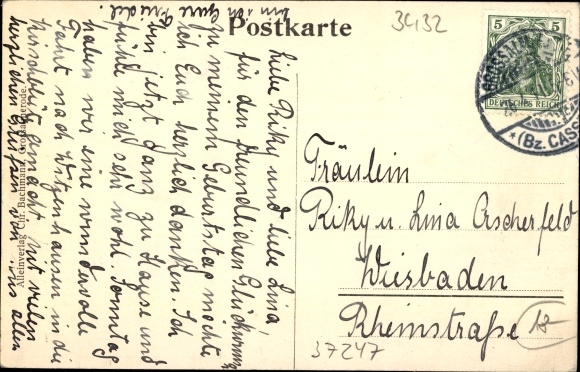 Postkarte
3432
5 5
DEUTSCHES REICH
GROSSALMERODE
*(Bz. CASS
Liebe Riky und liebe Lina!
für den freundlichen Glückwunsch
zu meinem Geburtstag möchte
ich Euch herzlich danken. Ich
bin jetzt ganz zu Hause und
fühle mich sehr wohl. Sonntag
haben wir eine wundervolle
Fahrt nach Witzenhausen in die
Kirschblüt gemacht. Mit vielen
herzlichen Grüßen von uns allen
bin ich Eure
Friedel.
Alleinverlag Chr. Bachmann, Großalmerode.
Fräulein
Riky u. Lina Ascherfeld
Wiesbaden
Rheinstraße
18
37247